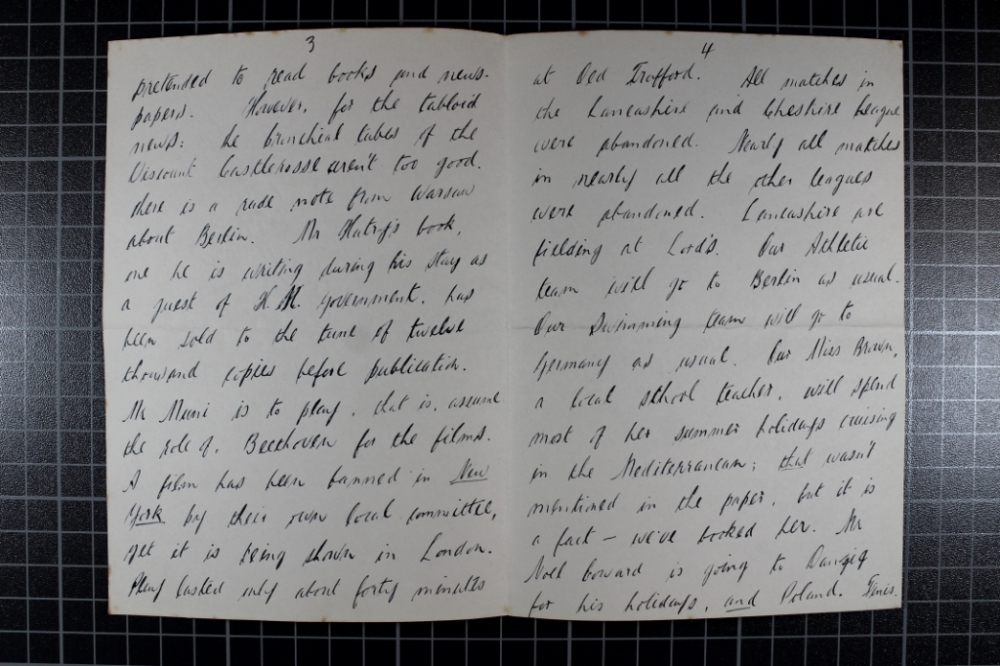 3
pretended to read books and news-
papers. However, for the tabloid
news: he bronchial tubes of the
Viscount Castlerosse aren't too good.
there is a rude note from Warsaw
about Berlin. Mr Hatry's book,
one he is writing during his stay as
a guest of H.M. government, has
been sold to the tune of twelve
thousand copies before publication.
Mr Muni is to play, that is, assume
the role of, Beethoven for the films.
A film has been banned in New
York by their own local committee,
yet it is being shown in London.
Play lasted only about forty minutes
4
at Old Trafford. All matches in
the Lancashire and Cheshire League
were abandoned. Nearly all matches
in nearly all the other leagues
were abandoned. Lancashire are
fielding at Lord's. Our Athletic
team will go to Berlin as usual.
Our swimming team will go to
Germany as usual. Our Miss Brown,
a local school teacher, will spend
most of her summer holidays cruising
in the Mediterranean; that wasn't
mentioned in the paper, but it is
a fact - we've booked her. Mr
Noel Coward is going to Danzig
for his holidays, and Poland. Finis.